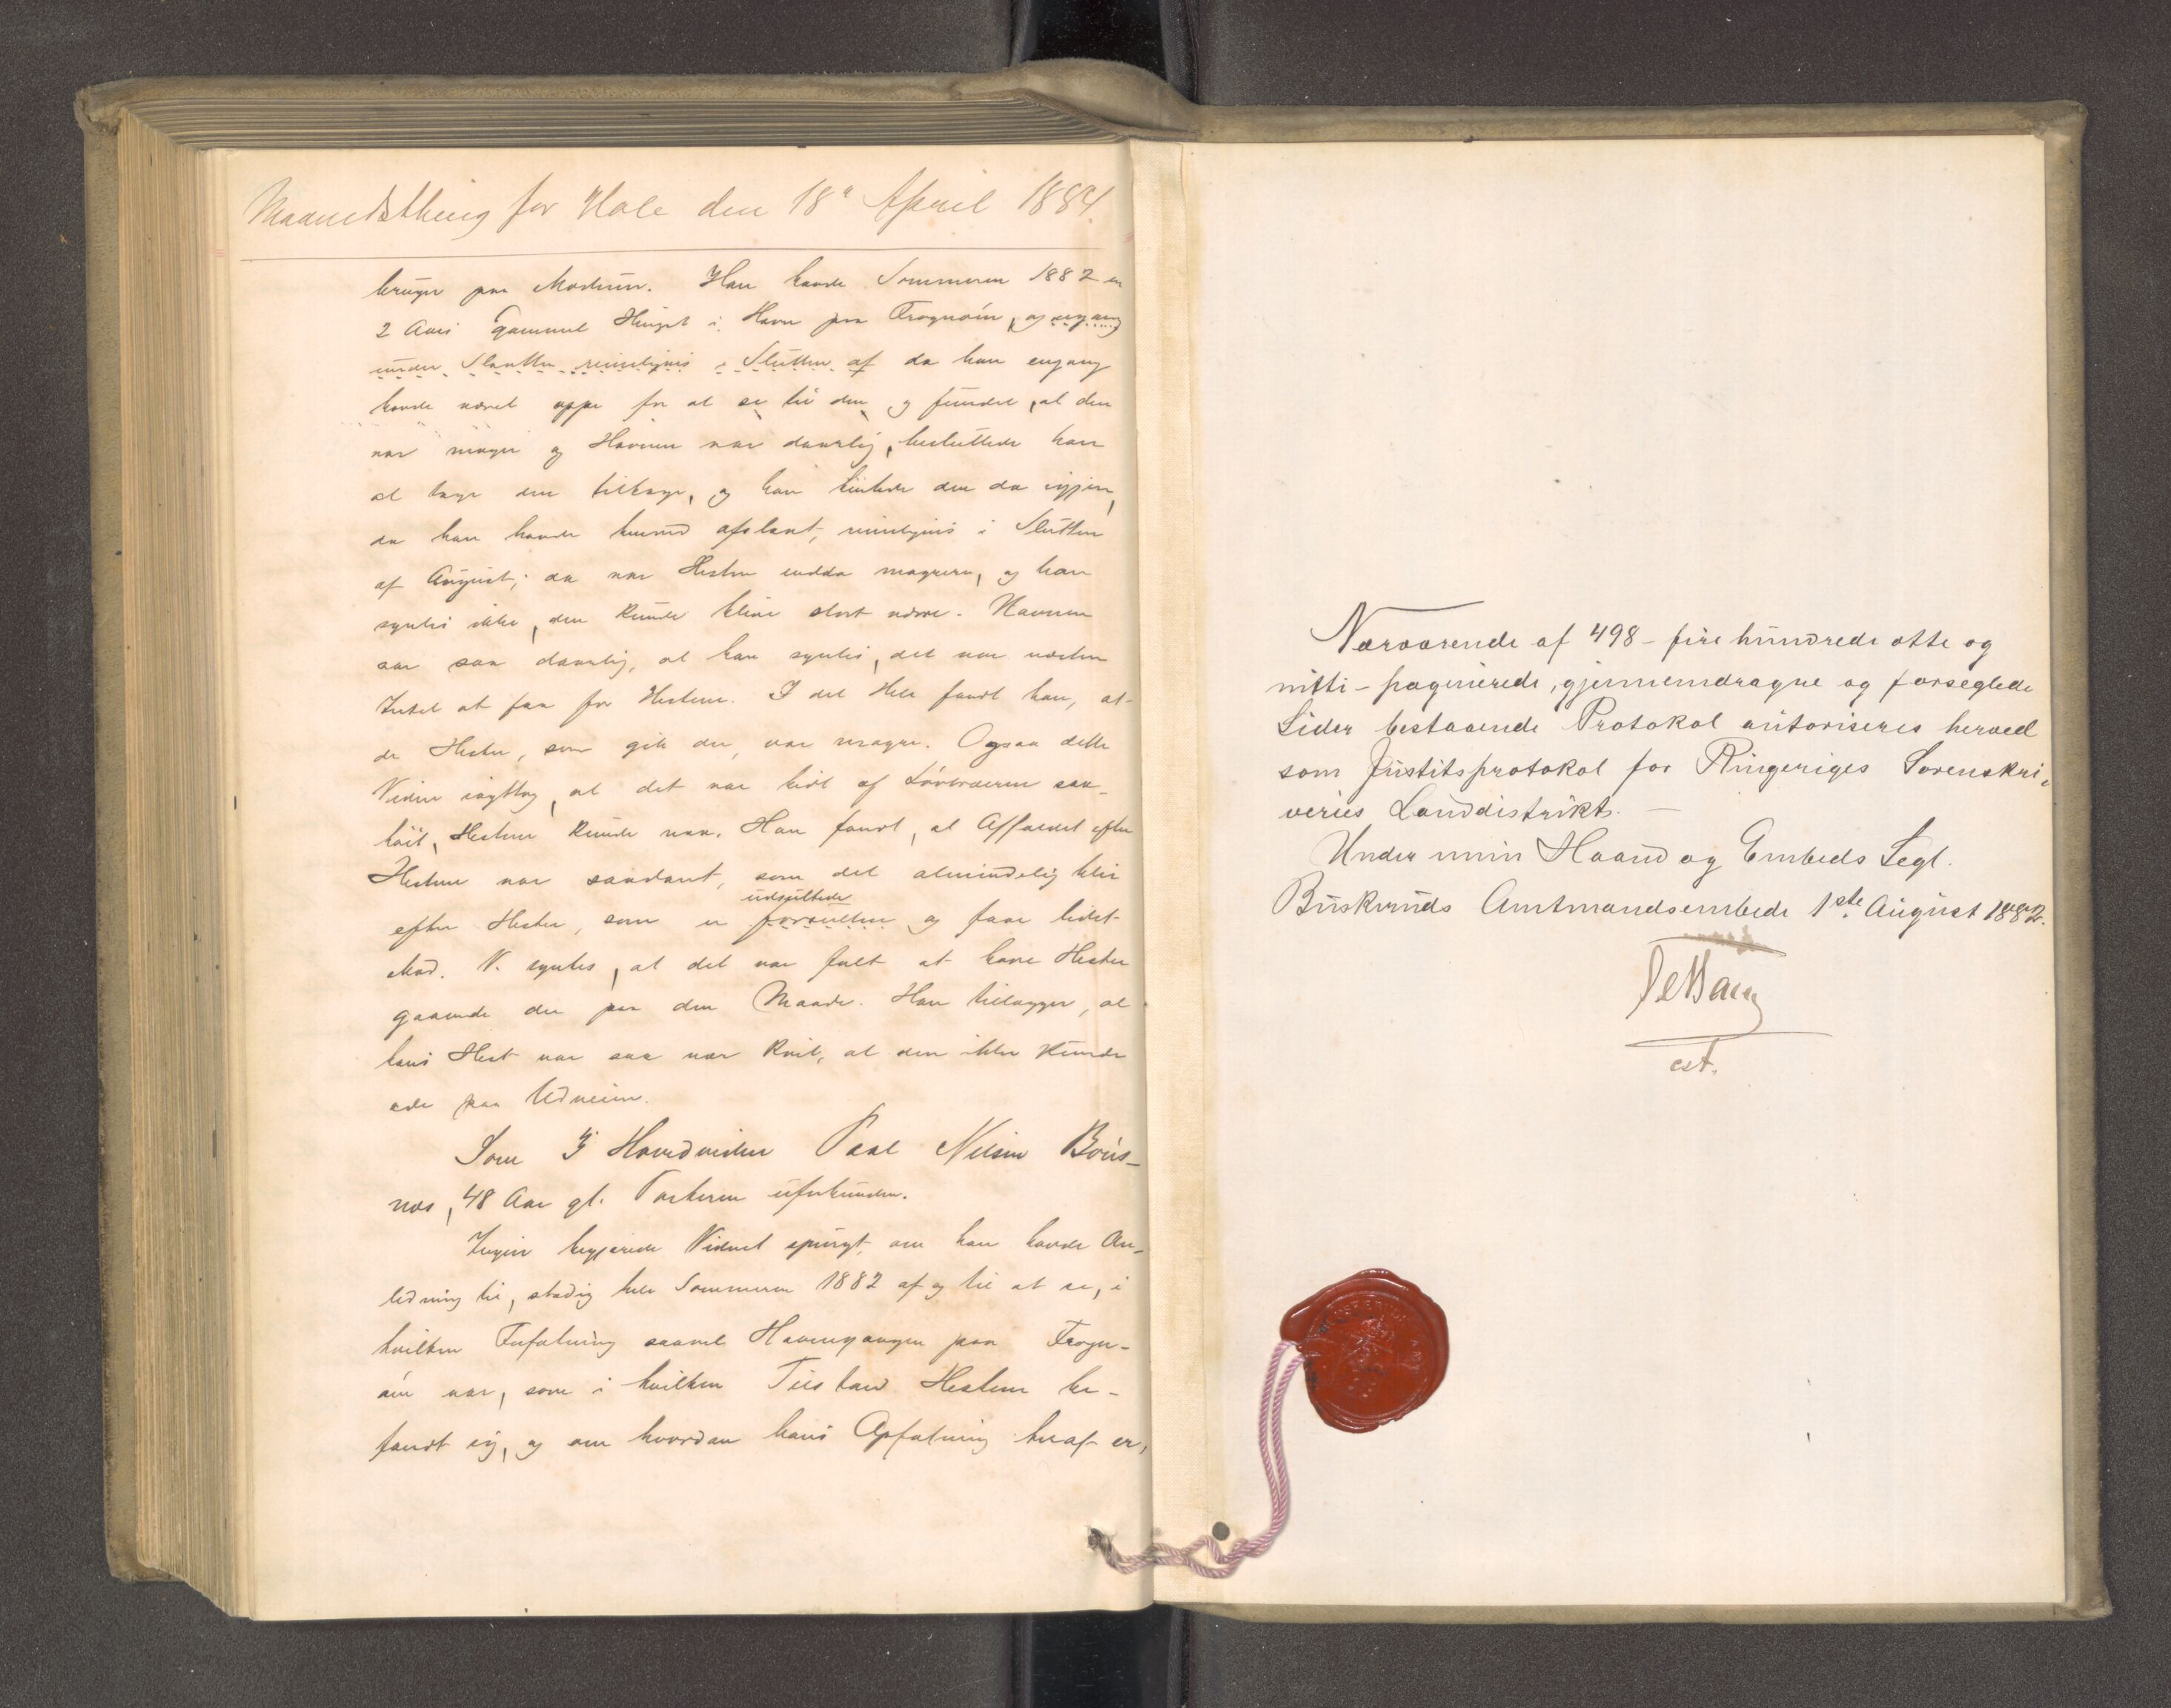 Maanedsthing for Hole den 18de April 1884.
bruger paa Modum. Han havde Sommeren 1882 en
2 Aars gammel Hingst i Havn paa Frognøen, og engang
under Slaatten rimeligvis i Slutten af da han engang
havde været oppe for at se til den og fundet, at den
var mager og Havnen var daarlig, besluttede han
at tage den tilbage, og han hentede den da igjen,
da han havde faaet afslaat, rimeligvis i Slutten
af August; da var Hesten endda magrere, og han
syntes ikke, den kunde blive stort værre. Havnen
var saa daarlig, at han syntes, det var næsten
Intet at faa for Hestene. I det Hele fandt han, at
de Heste, som gik der, var magre. Ogsaa dette
Vidne iagttog, at det var bidt af Løvtræerne saa
høit, Hestene kunde naa. Han fandt, at Affaldet efter
Hestene var saadant, som det almindelig blir
udsultede
efter Heste, som er forsultne og faar lidet
Mad. V. syntes, at det var fælt at have Heste
gaaende der paa den Maade. Han tillægger, at
hans Hest var saa nær kvit, at den ikke kunde
æde paa Udveien.
Som 3die Hovedvidne Paal Nilsen Bøns-
næs, 48 Aar gl. Parterne uforbunden.
Ingier begjærede Vidnet spurgt, om han havde An-
ledning til, stadig hele Sommeren 1882 af og til at se, i
hvilken Forfatning saavel Havnegangen paa Frogn-
øen var, som i hvilken Tilstand Hestene be-
fandt sig, og om hvordan hans Opfatning heraf er,
Nærværende af 498 - fire hundrede otte og
nitti - paginerede, gjennemdragne og forseglede
Sider bestaaende Protokol autoriseres herved
som Justitsprotokol for Ringeriges Sorenskri-
veries Landdistrikt. -
Under min Haand og Embeds Segl.
Buskeruds Amtmandsembede 1ste August 1882.
cst.